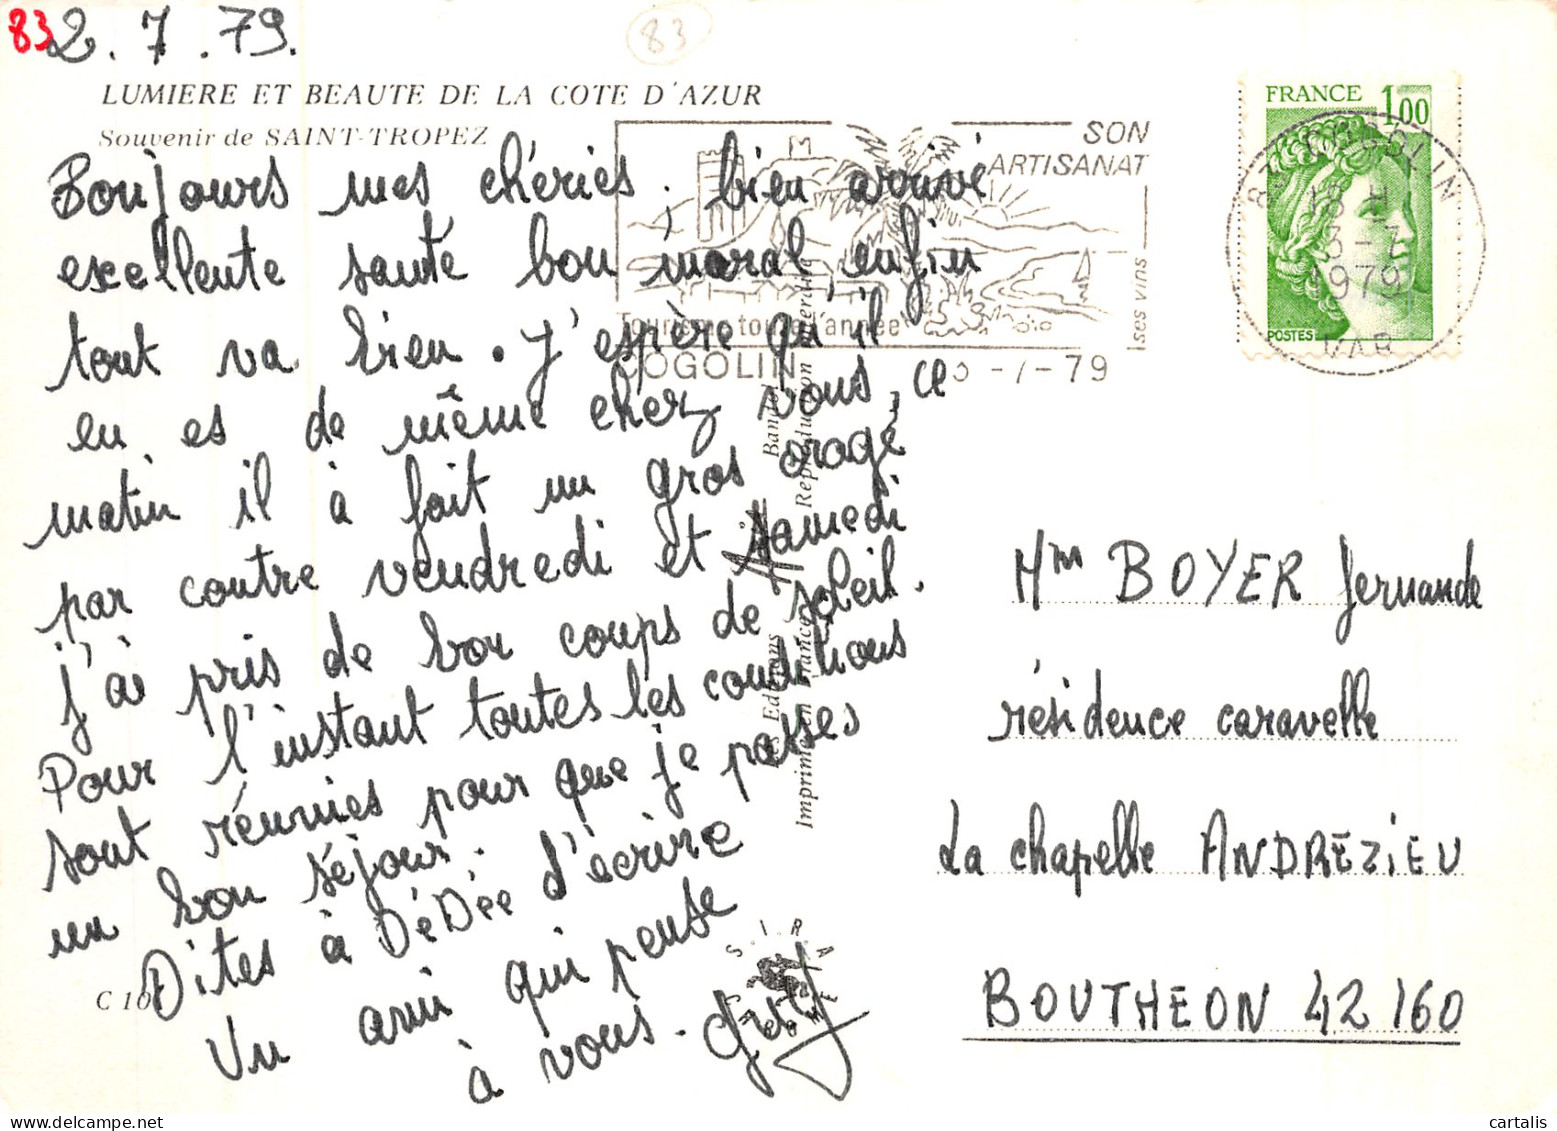 83
2.7.79.
83
LUMIERE ET BEAUTE DE LA COTE D'AZUR
Souvenir de SAINT-TROPEZ
Bonjours mes chéries, bien arrivé
excellente santé bon moral, enfin
tout va bien. J'espère qu'il
en es de même chez vous, ce
matin il à fait un gros orage
par contre vendredi et samedi
j'ai pris de bon coups de soleil.
Pour l'instant toutes les conditions
sont réunies pour que je passes
un bon séjour.
Dites à DéDée d'écrire
Un ami qui pense
à vous. Guy
C 10
SON
ARTISANAT
ses vins
Tourisme toute l'année
COGOLIN
3-7-79
FRANCE 1,00
POSTES
83 COGOLIN
18 H
3-7
1979
VAR
Les Editions
Bandol
Imprimé en France
Reproduction interdite
SIRA
CHROME
Mme BOYER Fernande
résidence caravelle
La chapelle ANDRÉZIEU
BOUTHEON 42160
cartalis